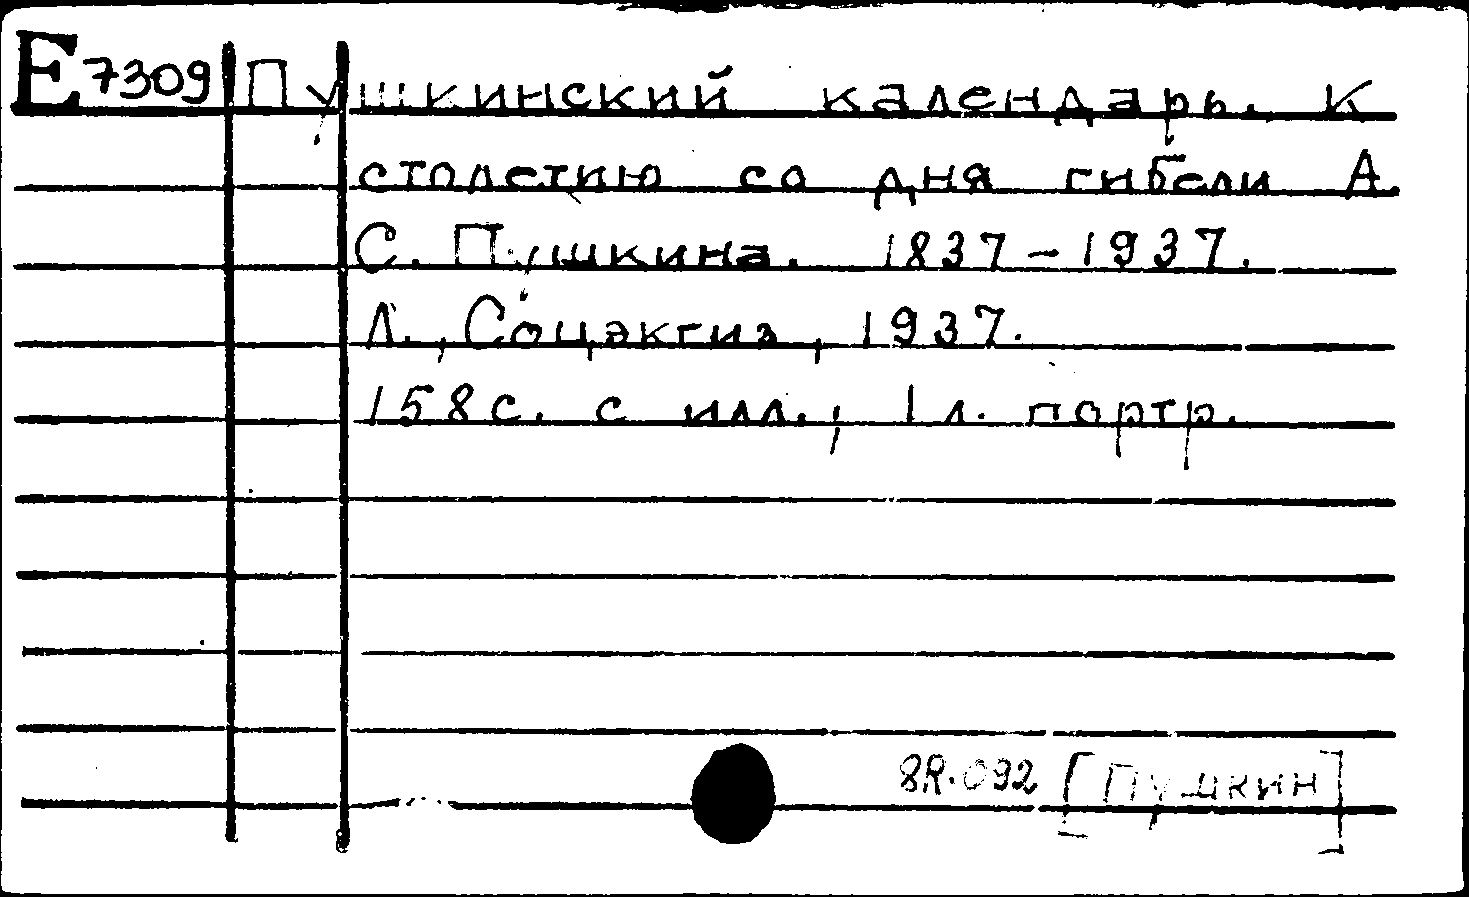 E7309 Пушкинский календарь. К
столетию со дня гибели А.
С. Пушкина. 1837-1937.
Л., Соцэкгиз, 1937.
158с. с илл.; 1 л. портр.
8R.092 [Пушкин]